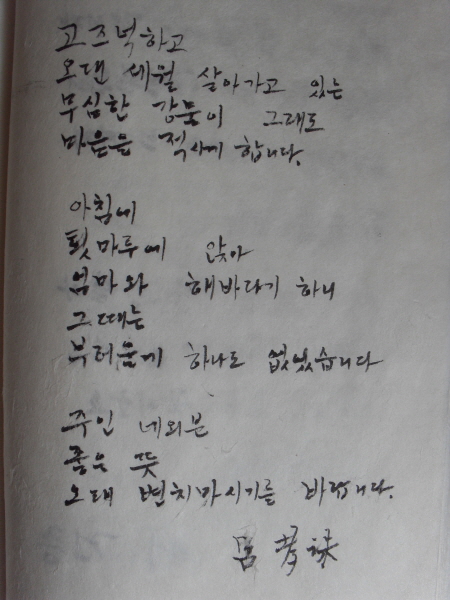 고즈넉하고
오랜 세월 살아가고 있는
무심한 강물이 그래도
마음을 적시게 합니다.
아침에
툇마루에 앉아
엄마와 해바라기 하니
그때는
부러울게 하나도 없었습니다
주인 네외분
좋은 뜻
오래 변치마시기를 바랍니다.